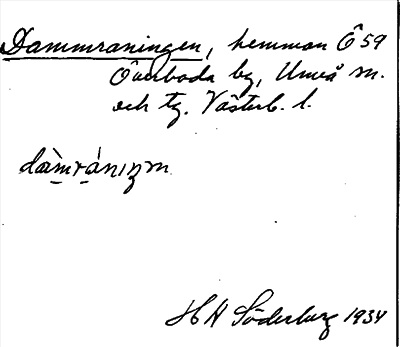 Dammraningen, hemman Ö 59
Överboda by, Umeå sn.
och tg. Västerb. l.
dàmránıŋm
H H Söderburg 1934